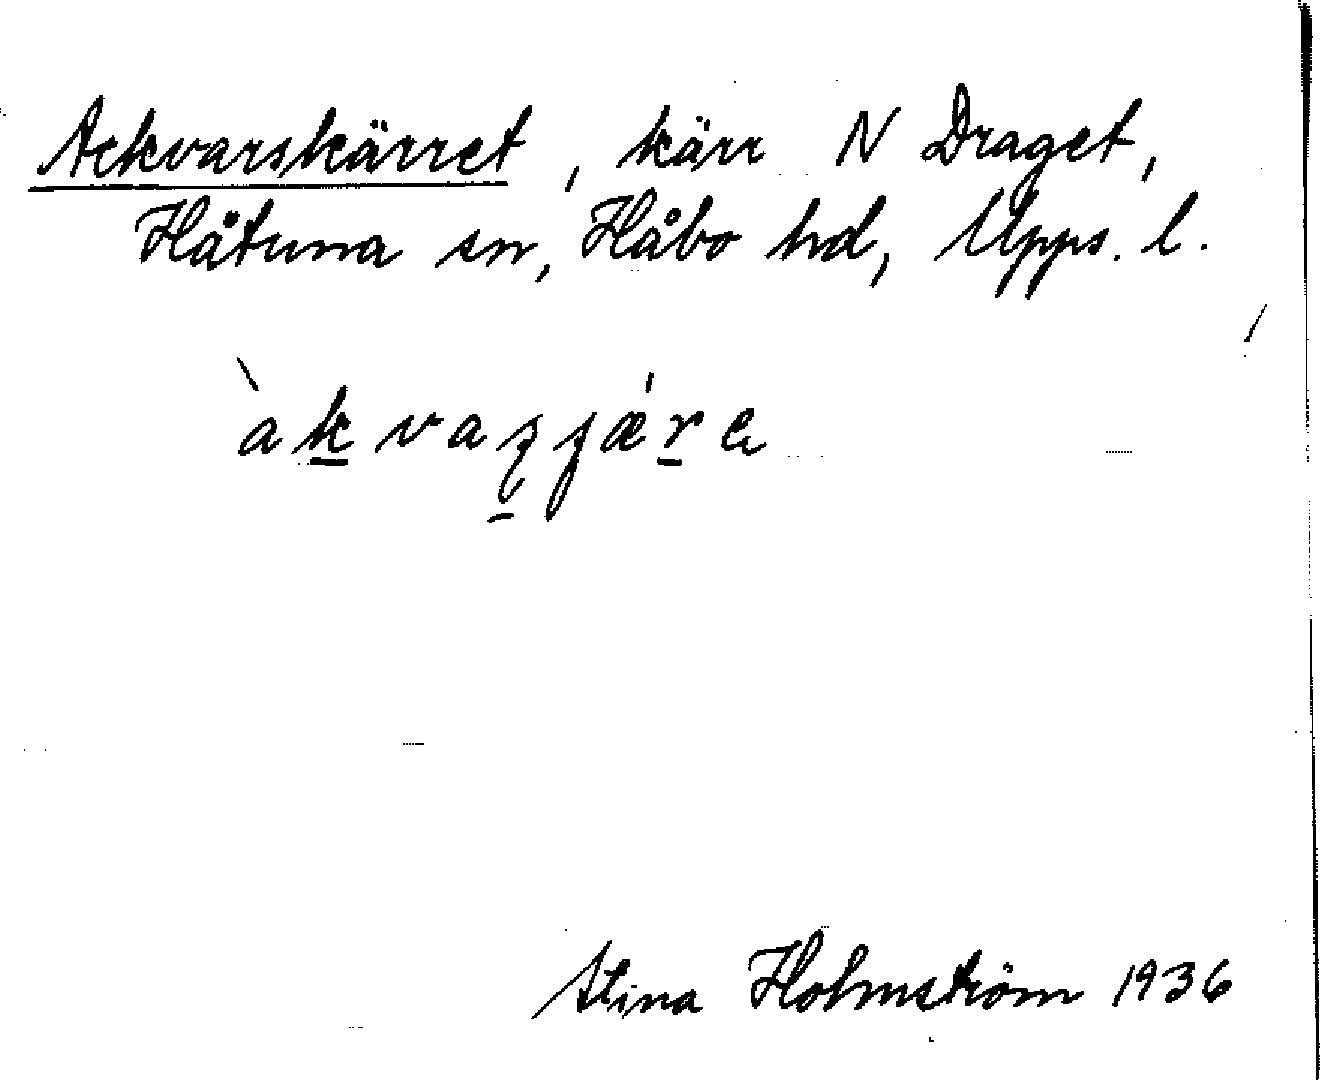 Ackvarskärret, kärr N Draget,
Håtuna sn, Håbo hd, Upps. l.
Stina Holmström 1936